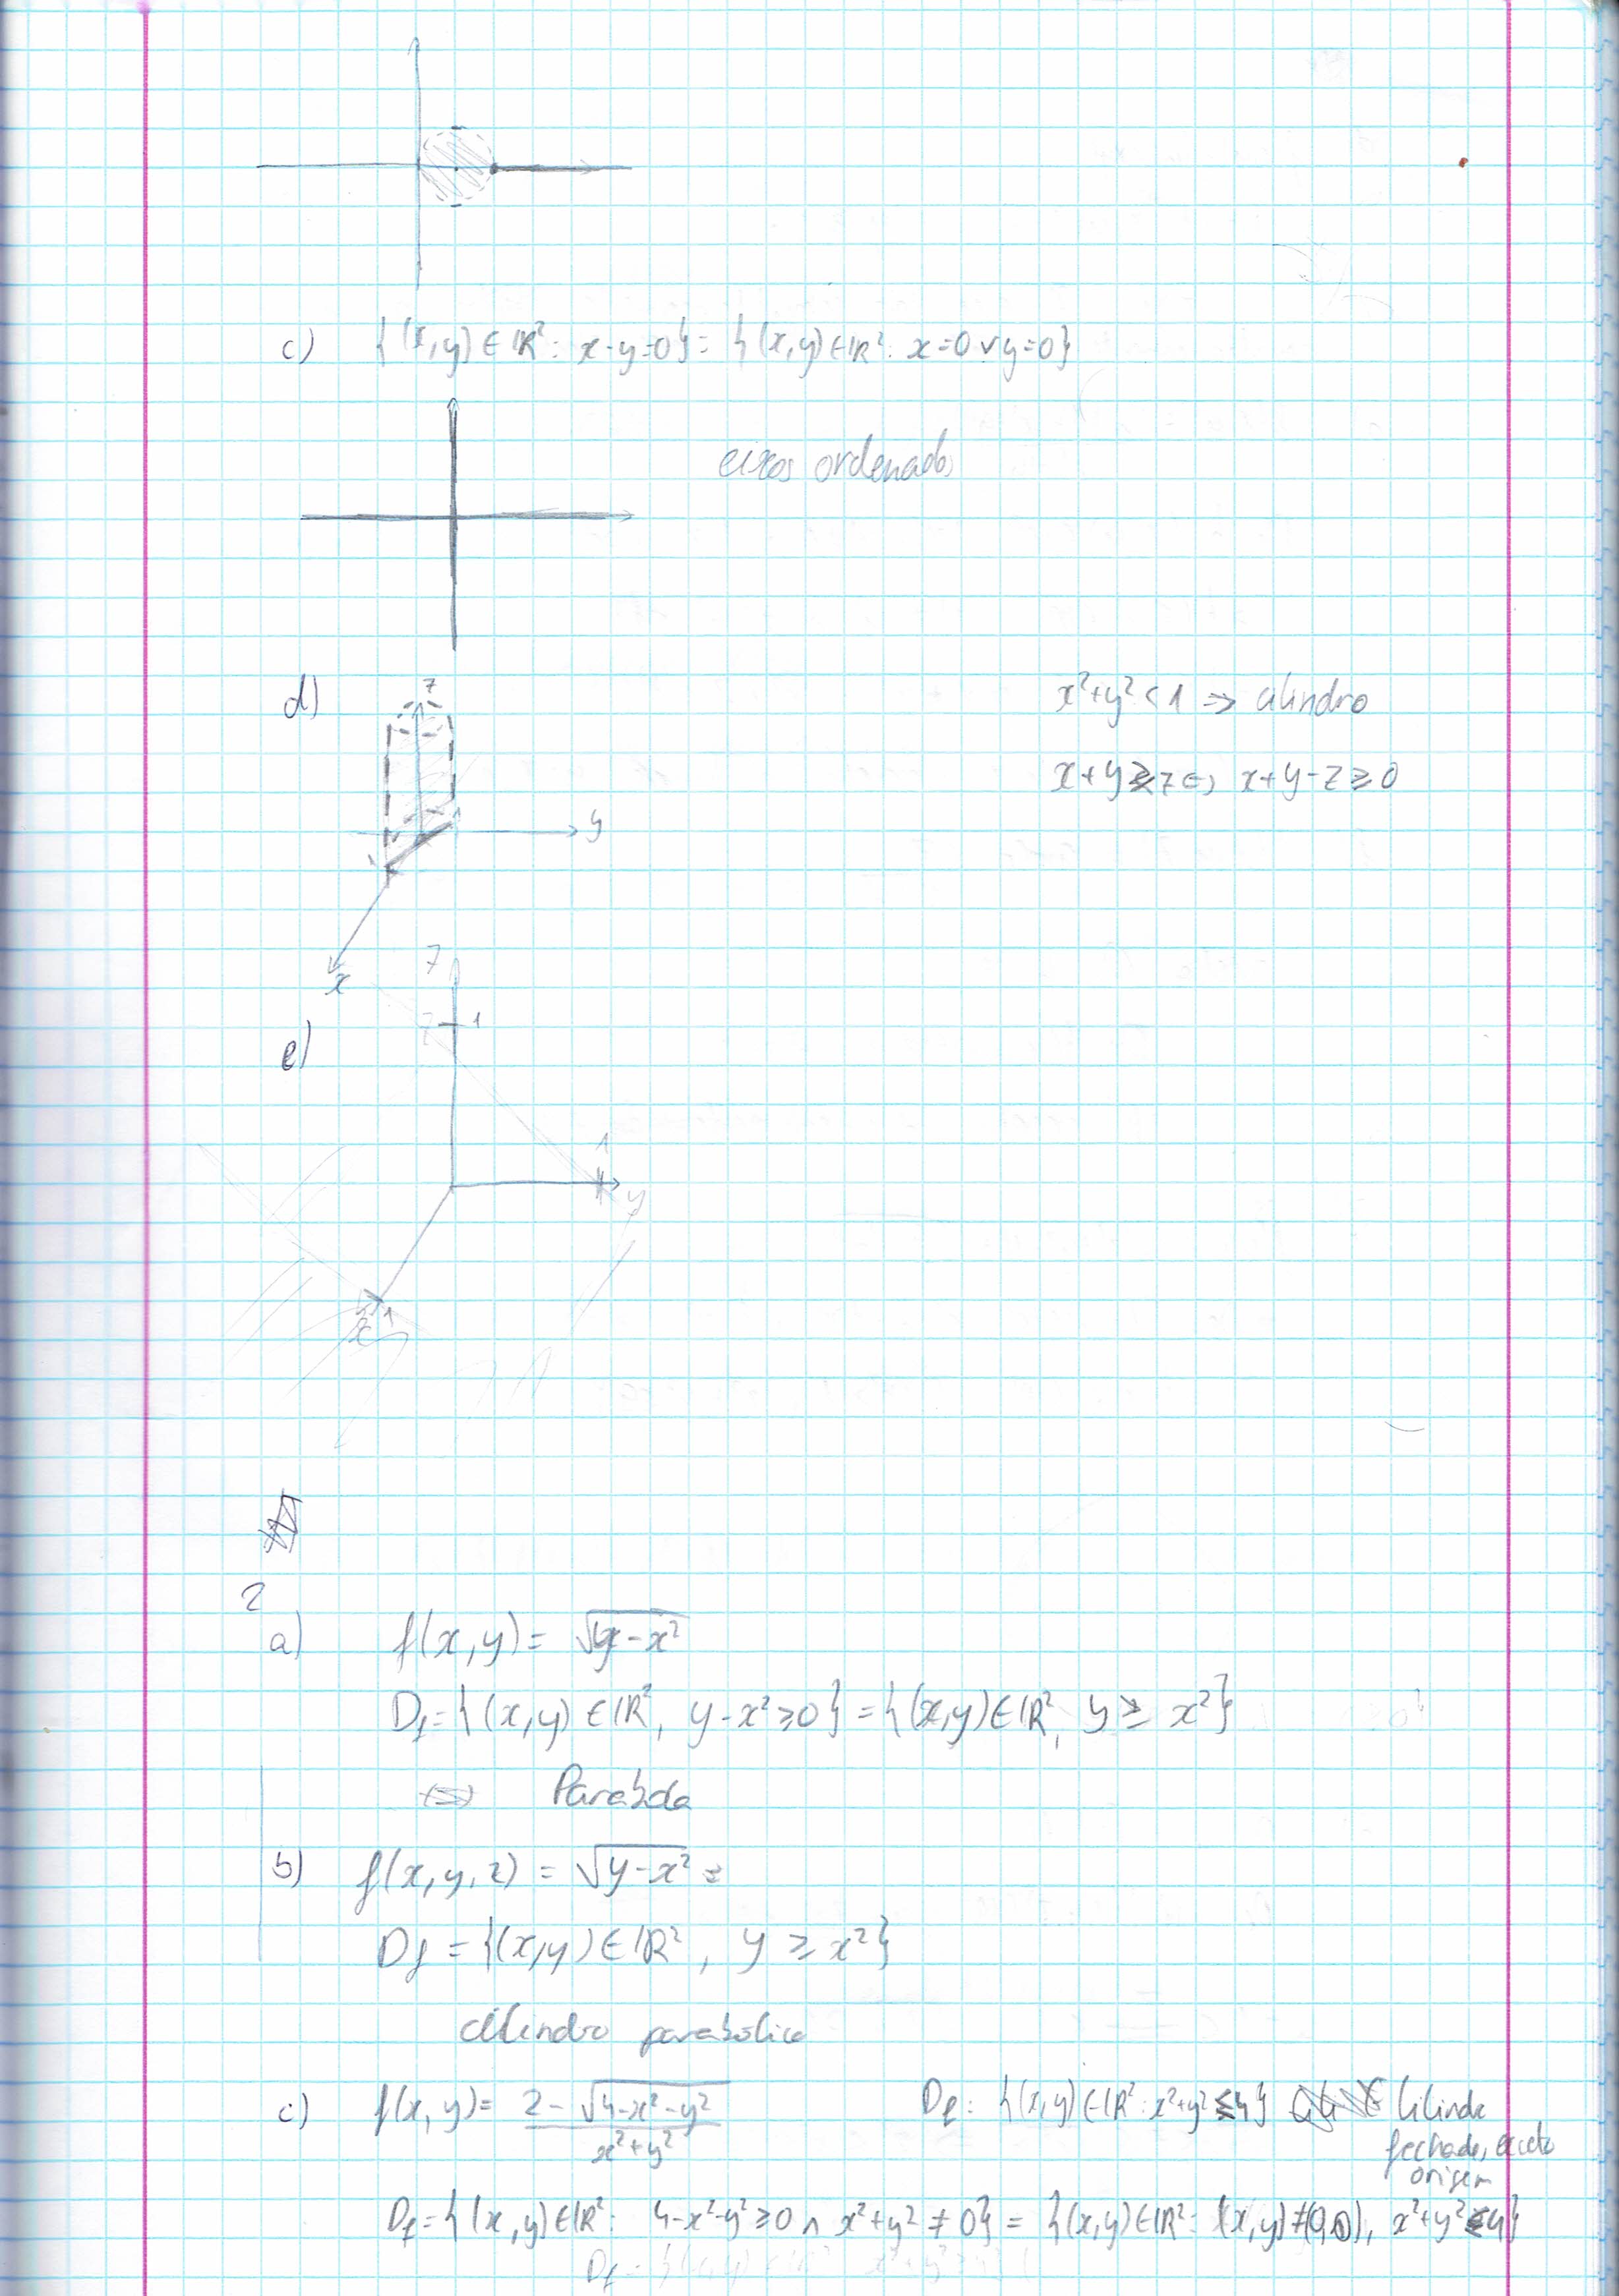 c) {(x,y) ∈ ℝ²: x·y=0} = {(x,y) ∈ ℝ²: x=0 ∨ y=0}
eixos ordenados
d) z x²+y² < 1 ⇒ cilindro
x+y ≥ z ⇔ x+y-z ≥ 0
y
x
z
1
e)
1
y
x 1
2
a) f(x,y) = √(y-x²)
D_f = {(x,y) ∈ ℝ², y-x² ≥ 0} = {(x,y) ∈ ℝ², y ≥ x²}
⇔ Parabola
b) f(x,y,z) = √(y-x²) =
Df = {(x,y) ∈ ℝ², y ≥ x²}
cilindro parabolico
c) f(x,y) = (2-√(4-x²-y²))/(x²+y²) D_f: {(x,y) ∈ ℝ²: x²+y² ≤ 4} Cilindro
fechado, exceto
origem
D_f = {(x,y) ∈ ℝ²: 4-x²-y² ≥ 0 ∧ x²+y² ≠ 0} = {(x,y) ∈ ℝ²: (x,y) ≠ (0,0), x²+y² ≤ 4}